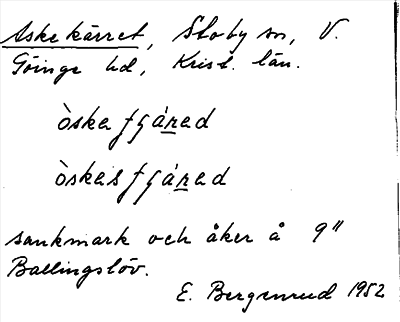 Askekärret, Stoby sn, V.
Göinge hd, Krist. län.
òskefjánad
òskesfjánad
sankmark och åker å 9"
Ballingslöv.
E. Bergenrud 1952